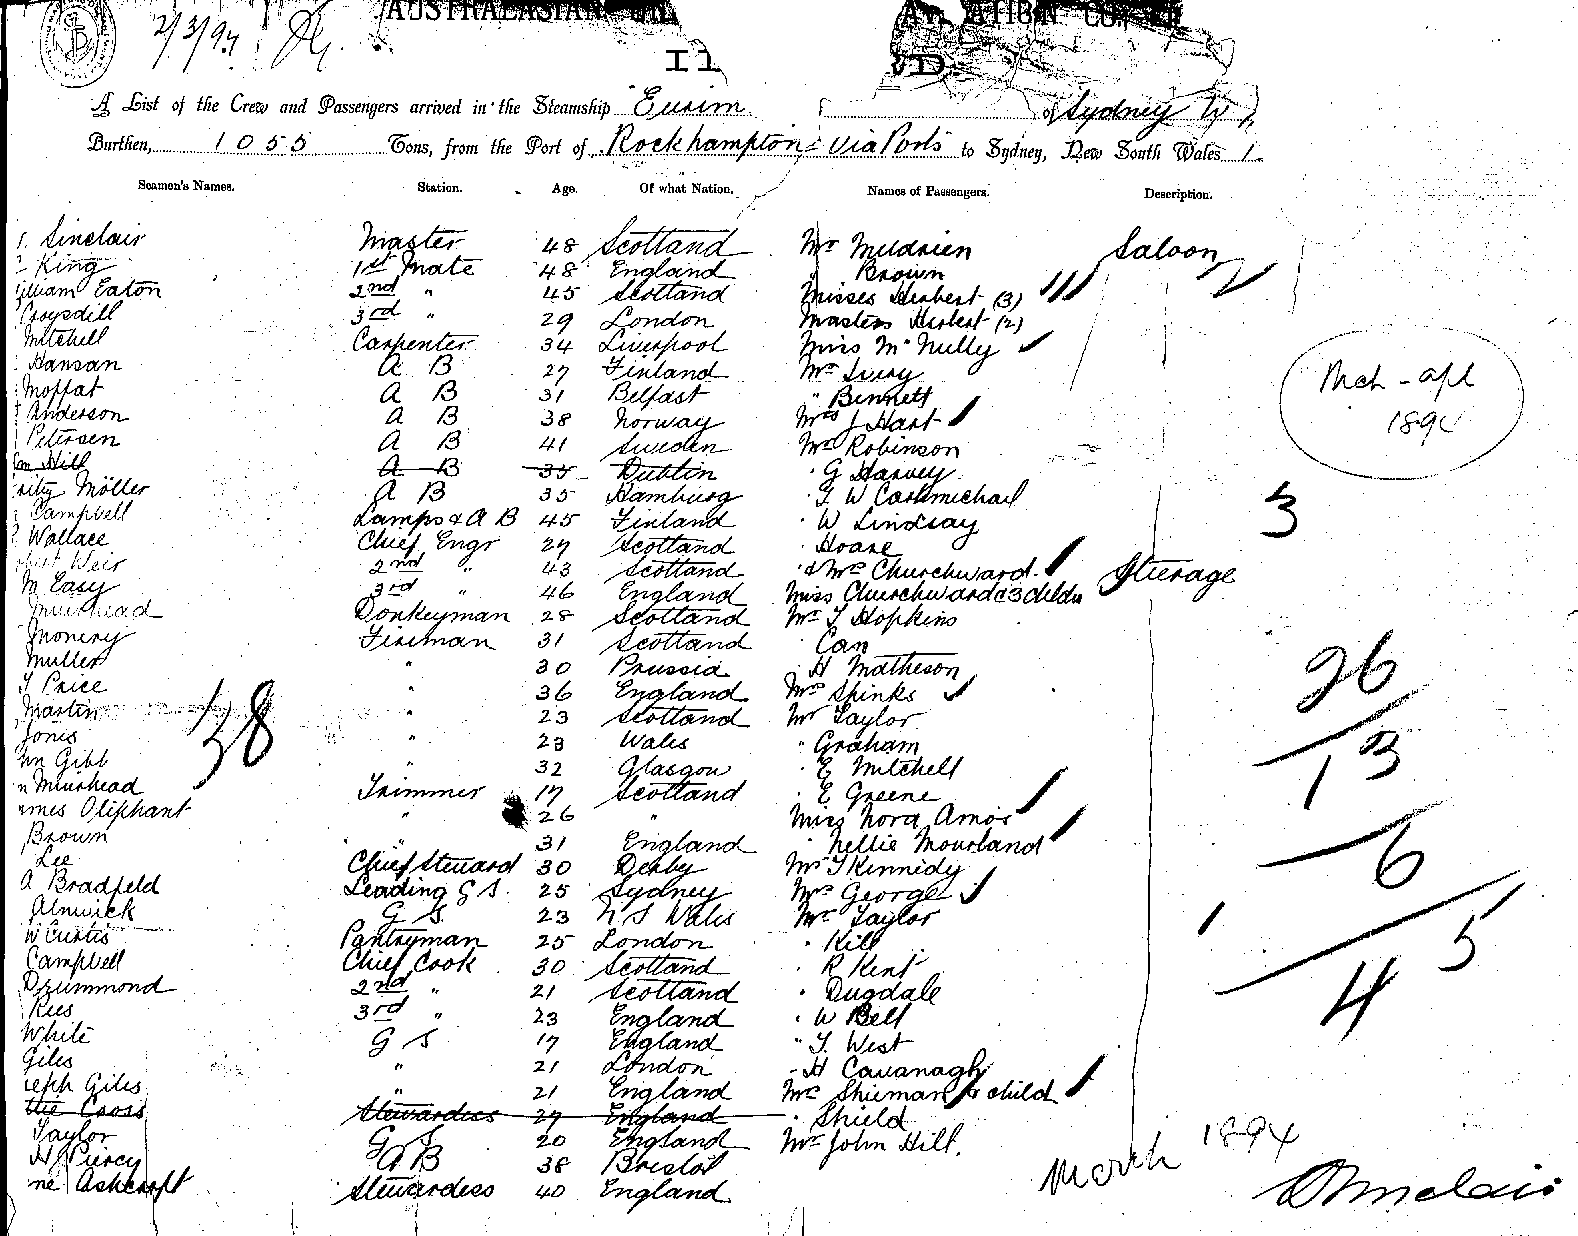 AUSTRALASIAN
2/3/94
A List of the Crew and Passengers arrived in the Steamship Eurim of Sydney
Burthen, 1055 Tons, from the Port of Rockhampton via Ports to Sydney, New South Wales
Seamen's Names. Station. Age. Of what Nation. Names of Passengers. Description.
Sinclair Master 48 Scotland Mr Meldrien Saloon
King 1st Mate 48 England Brown
William Eaton 2nd " 45 Scotland Misses Herbert (3)
Croysdill 3rd " 29 London Masters Herbert (2)
Mitchell Carpenter 34 Liverpool Miss McNully
Hansan A B 27 Finland Mr Ivery
Moffat A B 31 Belfast " Bennett
Anderson A B 38 Norway Mrs J Hart
Petersen A B 41 Sweden Mr Robinson
Hill A B 35 Dublin G Harvey
Möller A B 35 Hamburg T W Carmichael
Campbell Lamps & A B 45 Finland W Lindsay
Wallace Chief Engr 27 Scotland Hoare
Weir 2nd " 43 Scotland & Mrs Churchward Steerage
M Easy 3rd " 46 England Miss Churchward & 3 childn
Muirhead Donkeyman 28 Scotland Mr T Hopkins
Monery Fireman 31 Scotland Can
Muller " 30 Prussia H Matheson
T Price " 36 England Mrs Spinks
Martin " 23 Scotland Mr Taylor
Jones " 23 Wales Graham
Gibb " 32 Glasgow E Mitchell
Muirhead Trimmer 17 Scotland E Greene
James Oliphant " 26 " Miss Nora Amos
Brown " 31 England Nellie Mourland
Lee Chief Steward 30 Derby Mr T Kennedy
A Bradfeld Leading G S. 25 Sydney Mrs George
Alnwick G S. 23 N S Wales Mr Taylor
W Curtis Pantryman 25 London Kill
Campbell Chief Cook 30 Scotland R Kent
Drummond 2nd " 21 Scotland Dugdale
Rees 3rd " 23 England W Bell
White G S 17 England T. West
Giles " 21 London H Cavanagh
Giles " 21 England Mrs Shieman & child
Cross Stewardess 27 England Shield
Taylor G S 20 England Mr John Hill.
H Piercy A B 38 Bristol
Ashcroft Stewardess 40 England
38
Mch - Apl
1894
3
26
13
6
4 5
March 1894
Sinclair